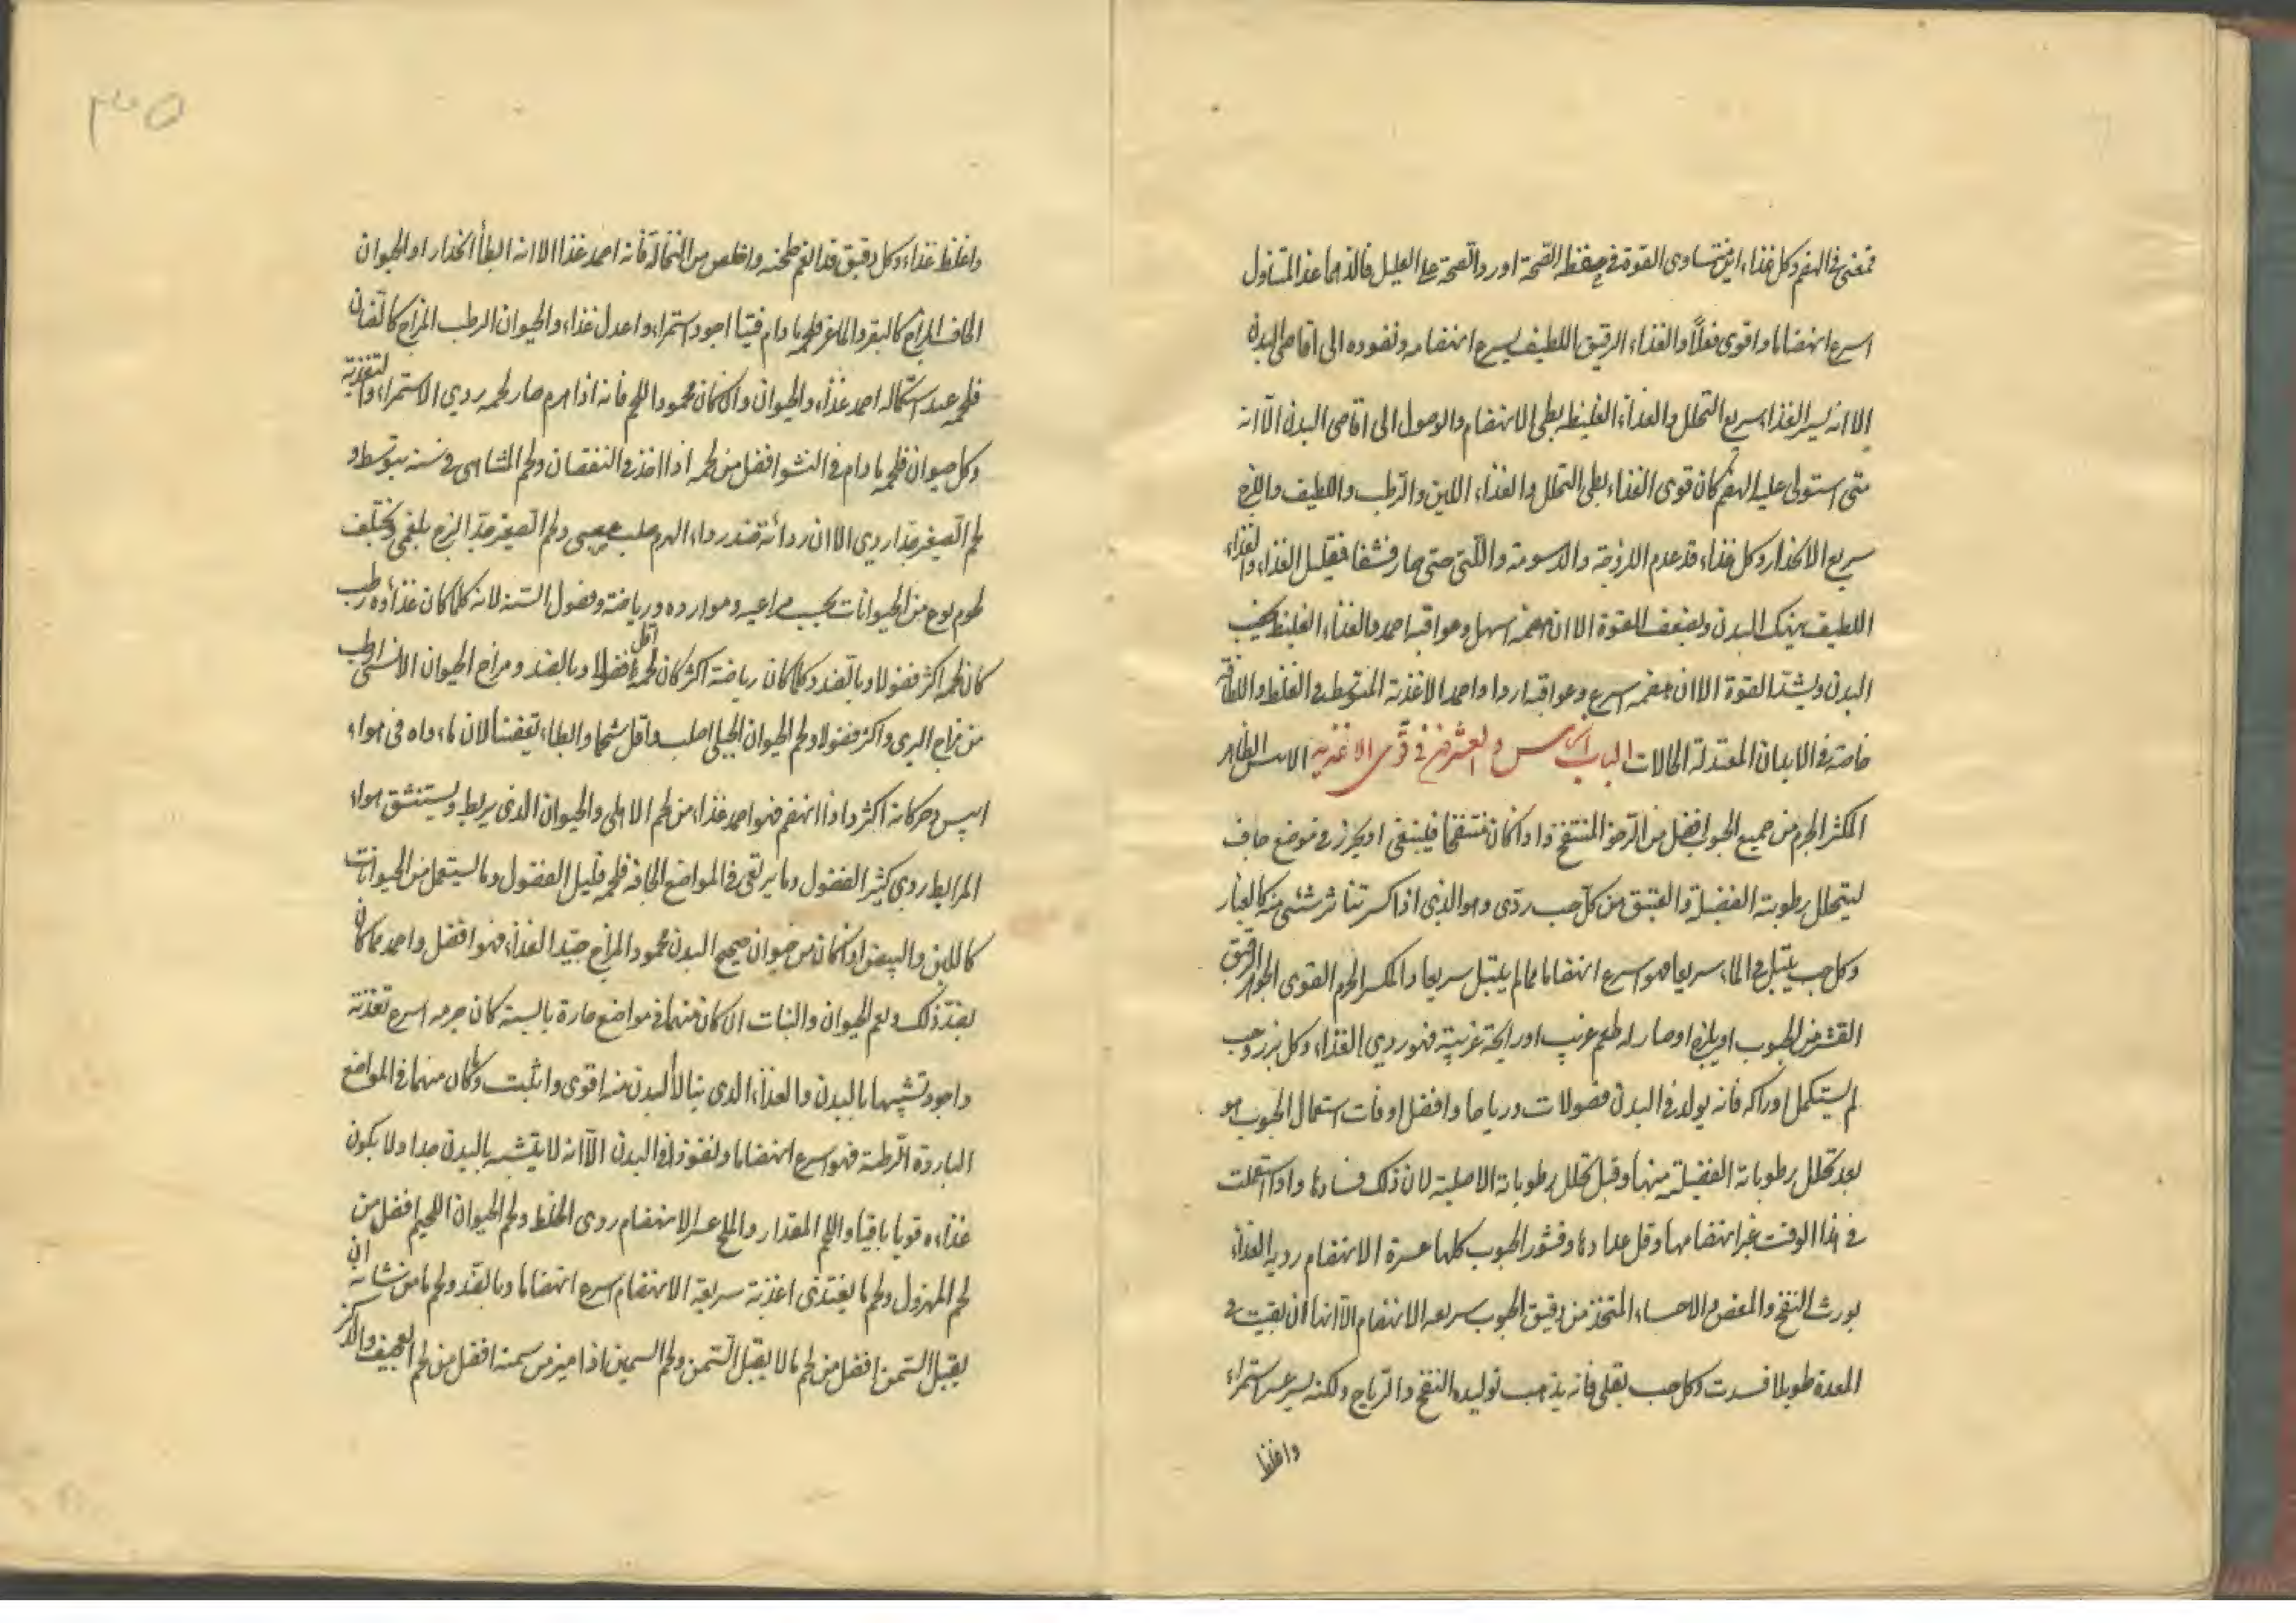 فمعنى في الهضم وكل غذاء اين متساوى القوة في حفظ الصحة او رد الصحة على العليل فالذهما عند المتناول
اسرع انهضاما واقوى فعلاً والغذاء الرقيق اللطيف يسرع انهضامه ونفوذه الى اقاصى البدن
الا انه يسير الغذاء سريع التحلل والغذاء الغليظ بطى الانهضام والوصول الى اقاصى البدن الّا انه
متى استولى عليه الهضم كان قوى الغذاء بطى التحلل والغذاء اللين والرطب واللطيف واللزج
سريع الانحدار وكل غذاء قد عدم اللزوجة والدسومة واللّتى حتى صار قشفا فقليل الغذاء والغذاء
اللطيف ينهك البدن ويضعف القوة الا ان هضمه اسهل وعواقبه احمد والغذاء الغليظ يخصب
البدن ويشد القوة الا ان هضمه اسرع وعواقبه اردا واحمد الاغذية المتوسط في الغلظ واللطافة
خاصة في الابدان المعتدلة الحالات الباب الخامس والعشرون في قوى الاغذية الاملس الظاهر
المكثر الجرم من جميع الحبوب افضل من الرخو المنتفخ واذا كان منتفخا فينبغى ان يحرز في موضع جاف
ليتحلل رطوبته الفضلية والعتيق من كل حب ردى وهو الذى اذا كسر تناثر شئى منه كالغبار
وكل حب يبتل في الماء سريعا فهو اسرع انهضاما مما لم يبتل سريعا والمكسر الجرم القوى الجوهر الرقيق
القشر من الحبوب او بلزه او صار له طعم غريب او رايحة غريبة فهو ردى الغذاء وكل بزر وحب
لم يستكمل ادراكه فانه يولد في البدن فضولات ورياحا وافضل اوقات استعمال الحبوب هو
بعد تحلل رطوباته الفضلية منها وقبل تحلل رطوباته الاصلية لان ذلك فسادها واذا استعملت
في هذا الوقت عسر انهضامها وقل غذاءها وقشور الحبوب كلها عسرة الانهضام ردية الغذاء
يورث النفخ والمغص والاحساء المتخذ من دقيق الحبوب سريعة الانهضام الّا انها ان بقيت في
المعدة طويلا فسدت وكل حب يقلى فانه يذهب توليده النفخ والرياح ولكنه يسير عسر استمراء
واغلظ
واغلظ غذاء وكل دقيق قد انعم طحنه واخلص من النخالة فانه احمد غذا الا انه ابطأ انحدار او الحيوان
الجاف المزاج كالبقر والماعز فلحمه ما دام فتيا اجود استمراء واعدل غذاء والحيوان الرطب المزاج كالضان
فلحمه عند اكتماله احمد غذاء والحيوان وان كان محمود اللحم فانه اذا هرم صار لحمه ردى الاستمراء والتغذية
وكل حيوان فلحمه ما دام في النشو افضل من لحمه اذا اخذ في النقصان ولحم المتناهى في سنه متوسط و
لحم الصغير جدا ردى الا ان ردائة ضد رداءة الهرم صلب عصبى ولحم الصغير جدا لزج بلغمى ويختلف
لحوم نوع من الحيوانات بحسب مراعيه وموارده ورياضته وفصول السنة لانه كلما كان غذاؤه رطب
كان لحمه اكثر فضولا وبالضد وكلما كان رياضته اكثر كان لحمه اقل فضولا وبالضد ومزاج الحيوان الانسى ارطب
من مزاج البرى واكثر فضولا ولحم الحيوان الجبلى اصلب واقل شحما وابطاء تعفنا لان ماءواه في هواء
ايبس وحركاته اكثر واذا انهضم فهو احمد غذاء من لحم الاهلى والحيوان الذى يربط ويستنشق هواء
المرابط ردى كثير الفضول وما يرتعى في المواضع الجافة فلحمه قليل الفضول وما يستعمل من الحيوانات
كاللبن والبيض اذا كان من حيوان صحيح البدن محمود المزاج جيد الغذاء فهو افضل واحمد مما كان
بضد ذلك ونعم الحيوان والنبات ان كان منهما في مواضع حارة يابسة كان جرمه اسرع تغذية
واجود تشبيها بالبدن والغذاء الذى يناله البدن منه اقوى واثبت وما كان منهما في المواضع
الباردة الرطبة فهو اسرع انهضاما ونفوذا في البدن الّا انه لا يتشبه بالبدن جدا ولا يكون
غذاءه قويا باقيا واللحم المقدار والملح عسر الانهضام ردى الخلط ولحم الحيوان اللحيم افضل من
لحم المهزول ولحم ما يغتذى اغذية سريعة الانهضام اسرع انهضاما وبالضد ولحم ما من شانه ان
يقبل السمن افضل من لحم ما لا يقبل السمن ولحم السمين اذا ميز من سمنه افضل من لحم العجيف والذكر
٣٥